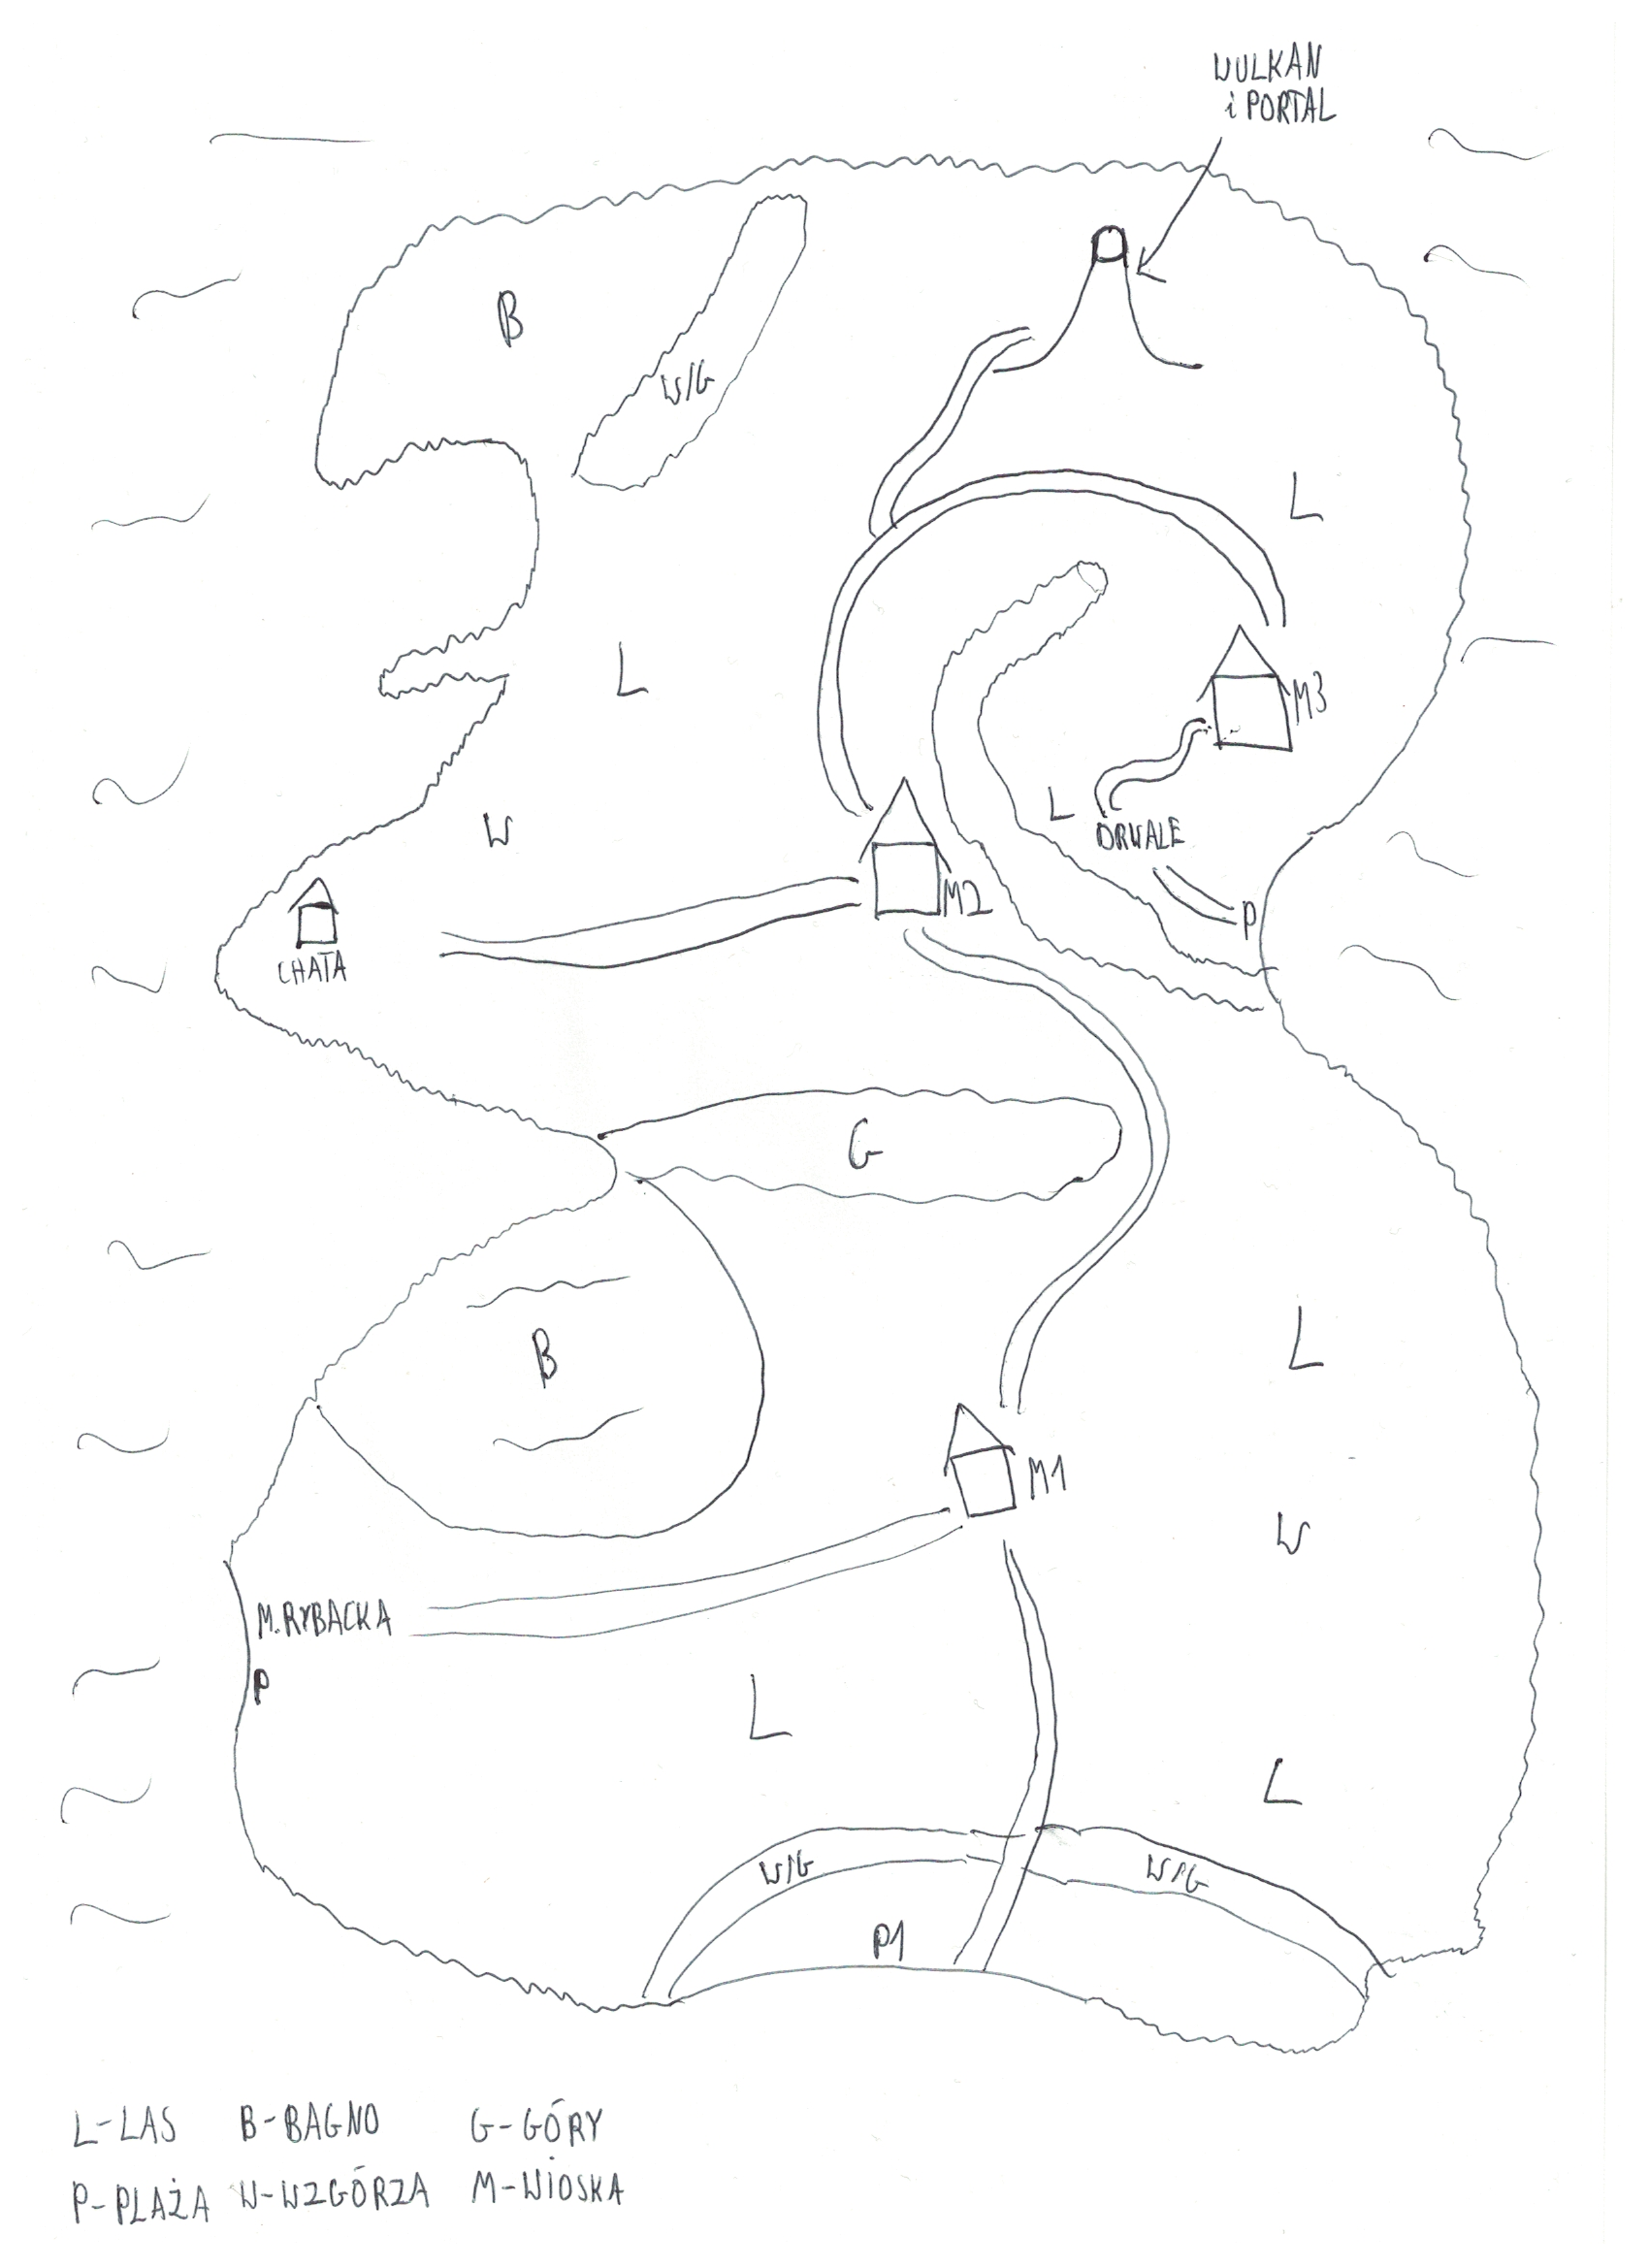 WULKAN
i PORTAL
B
W/G
L
L
M3
L
DRWALE
W
M2
P
CHATA
G
B
L
M1
W
M.RYBACKA
P
L
L
W/G
W/G
P1
L-LAS B-BAGNO G-GÓRY
P-PLAŻA W-WZGÓRZA M-WIOSKA